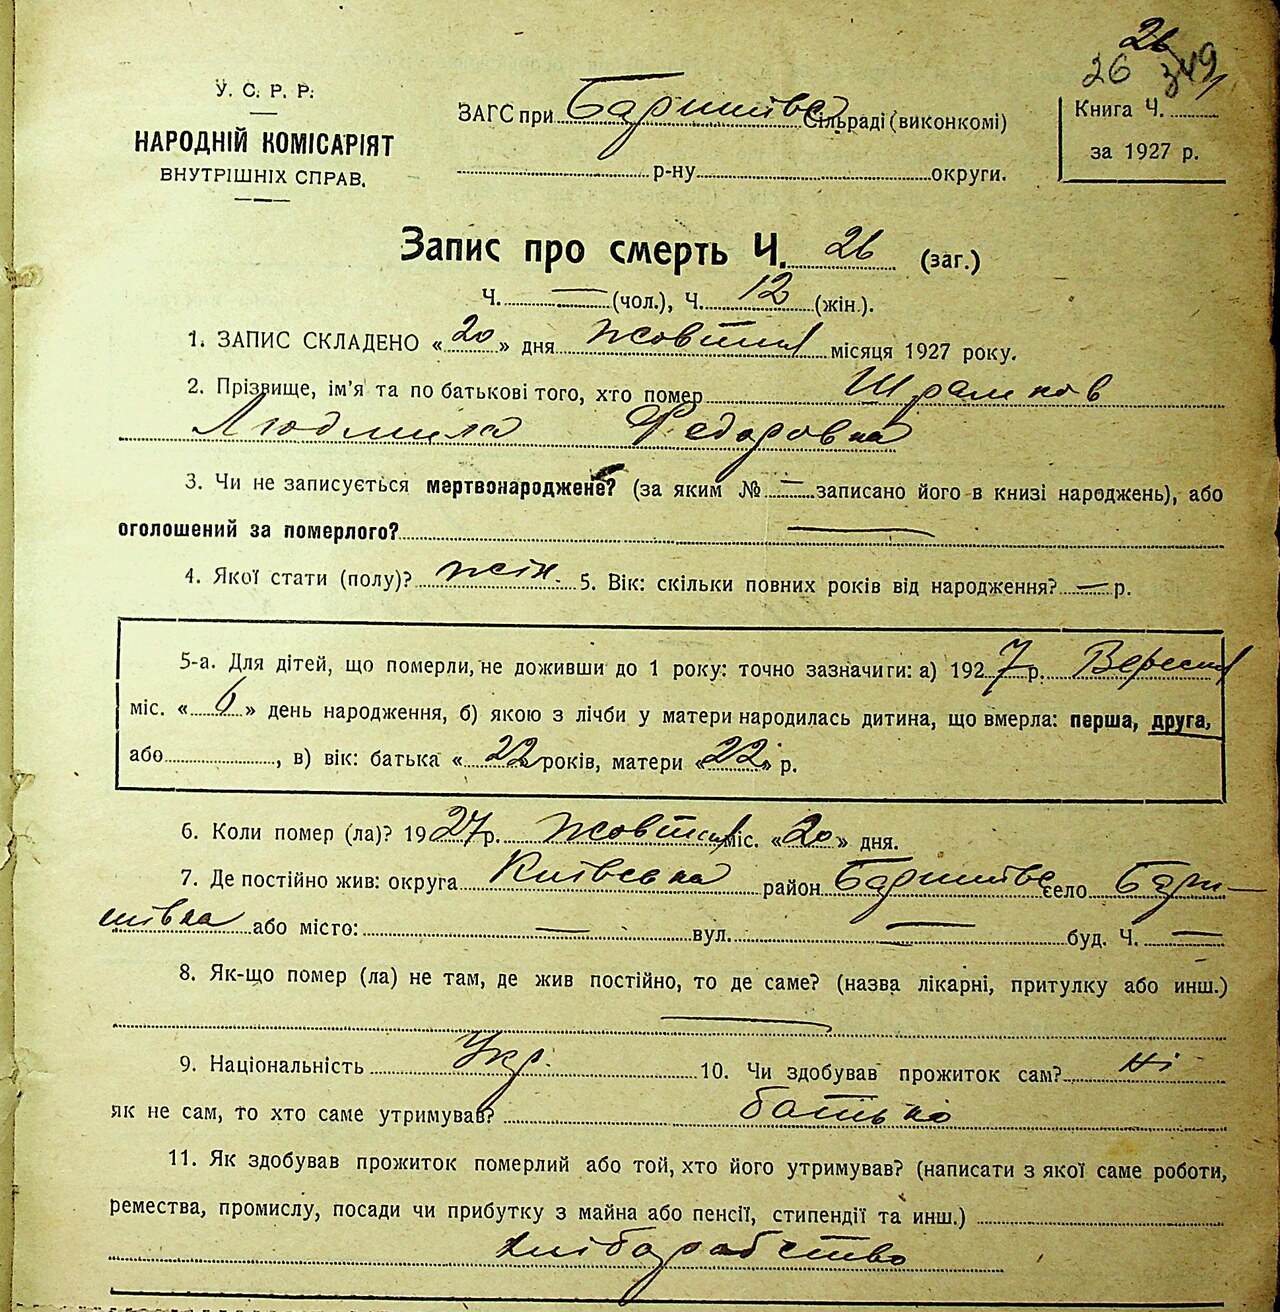 26
26 349
У. С. Р. Р.
НАРОДНІЙ КОМІСАРІЯТ
ВНУТРІШНІХ СПРАВ.
ЗАГС при Баришівс Сільраді (виконкомі)
р-ну округи.
Книга Ч.
за 1927 р.
Запис про смерть Ч. 26 (заг.)
Ч. — (чол.), Ч. 12 (жін.).
1. ЗАПИС СКЛАДЕНО «20» дня жовтня місяця 1927 року.
2. Прізвище, ім'я та по батькові того, хто помер Шрамков
Людмила Федоровна
3. Чи не записується мертвонароджене? (за яким № — записано його в книзі народжень), або
оголошений за померлого? —
4. Якої стати (полу)? жін. 5. Вік: скільки повних років від народження? — р.
5-а. Для дітей, що померли, не доживши до 1 року: точно зазначити: а) 1927 р. Вересня
міс. «6» день народження, б) якою з лічби у матери народилась дитина, що вмерла: перша, друга,
або , в) вік: батька «22» років, матери «22» р.
6. Коли помер (ла)? 1927 р. жовтня міс. «20» дня.
7. Де постійно жив: округа Київська район Баришівс село Бари-
шівка або місто: — вул. — буд. Ч. —
8. Як-що помер (ла) не там, де жив постійно, то де саме? (назва лікарні, притулку або инш.)
—
9. Національність Укр. 10. Чи здобував прожиток сам? ні
як не сам, то хто саме утримував? батько
11. Як здобував прожиток померлий або той, хто його утримував? (написати з якої саме роботи,
ремества, промислу, посади чи прибутку з майна або пенсії, стипендії та инш.)
хліборобство